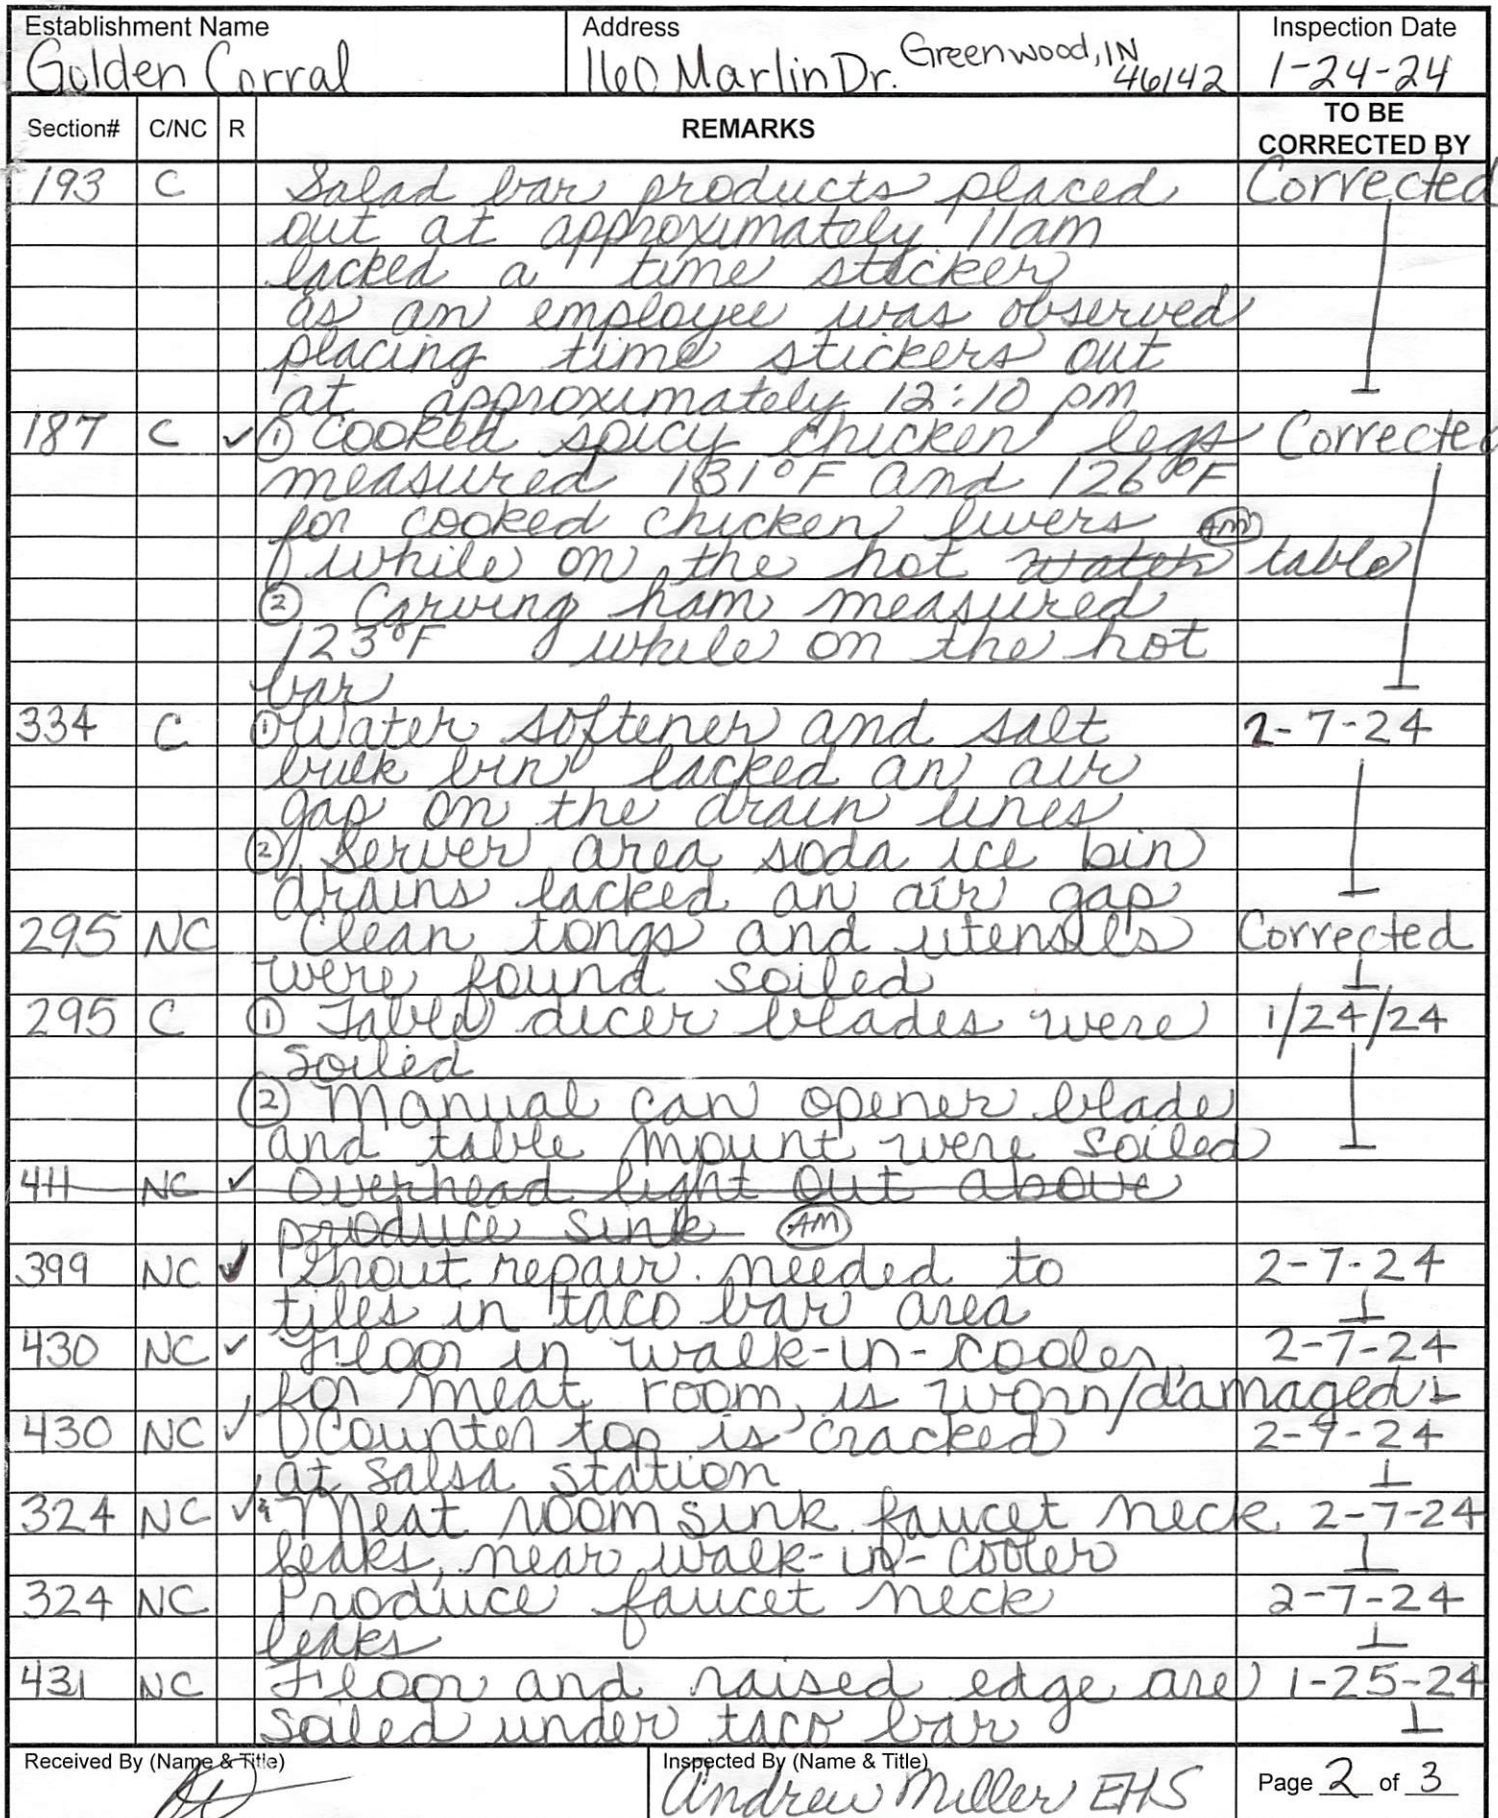 Establishment Name Address Inspection Date
Golden Corral 160 Marlin Dr. Greenwood, IN 46142 1-24-24
Section# C/NC R REMARKS TO BE CORRECTED BY
193 C Salad bar products placed Corrected
out at approximately 11am
lacked a time sticker
as an employee was observed
placing time stickers out
at approximately 12:10 pm
187 C ✓ ① Cooked spicy chicken legs Corrected
measured 131°F and 126°F
for cooked chicken livers AM
while on the hot water table
② Carving ham measured
123°F while on the hot
bar
334 C ① Water softener and salt 2-7-24
bulk bin lacked an air
gap on the drain lines
② Server area soda ice bin
drains lacked an air gap
295 NC Clean tongs and utensils Corrected
were found soiled
295 C ① Table dicer blades were 1/24/24
soiled
② Manual can opener blade
and table mount were soiled
411 NC ✓ Overhead light out above
produce sink AM
399 NC ✓ Grout repair needed to 2-7-24
tiles in taco bar area
430 NC ✓ Floor in walk-in-cooler, 2-7-24
for meat room, is worn/damaged
430 NC ✓ Counter top is cracked 2-7-24
at salsa station
324 NC ✓ Meat room sink faucet neck 2-7-24
leaks, near walk-in-cooler
324 NC Produce faucet neck 2-7-24
leaks
431 NC Floor and raised edge are 1-25-24
soiled under taco bar
Received By (Name & Title) Inspected By (Name & Title) Page 2 of 3
Andrew Miller EHS